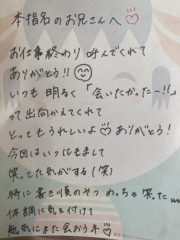 本指名のお兄さんへ♡
お仕事終わり 呼んでくれて
ありがとう!!
いつも 明るく 「会いたかったー!!」
って 出向かえてくれて
とってもうれしいよ♡ ありがとう!
今回はいつにもまして
笑ってた気がする(笑)
特に
のやつ めっちゃ笑った
体調に気を付けて
元気にまた会おうね♡